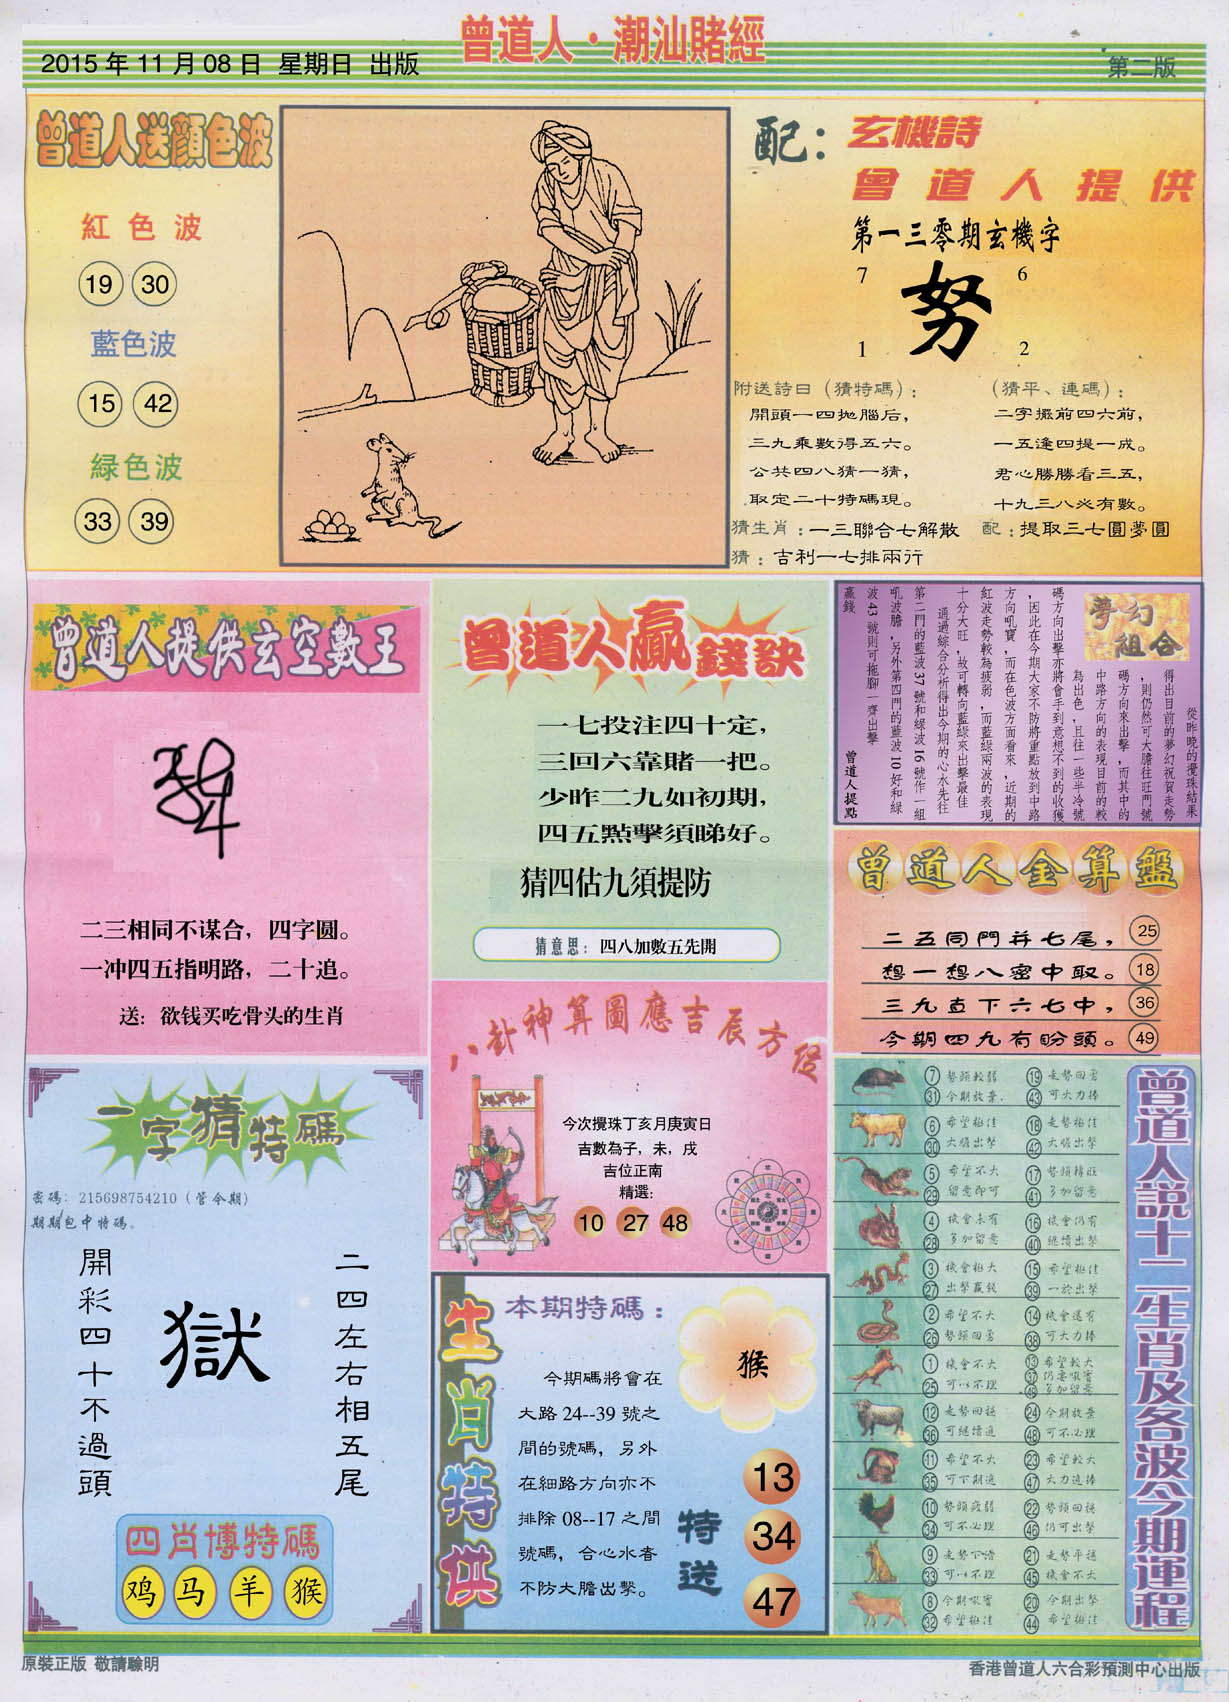 曾道人·潮汕賭經
2015年11月08日 星期日 出版
第二版
曾道人送顔色波
紅色波
19 30
藍色波
15 42
緑色波
33 39
配：玄機詩
曾道人提供
第一三零期玄機字
7 6
努
1 2
附送詩曰（猜特碼）：
開頭一四拋腦后，
三九乘數得五六。
公共四八猜一猜，
取定二十特碼現。
（猜平、連碼）：
二字擺前四六前，
一五逢四提一成。
君心勝勝看三五，
十九三八必有數。
猜生肖：一三聯合七解散
配：提取三七圓夢圓
猜：吉利一七排兩行
曾道人提供玄空數王
二三相同不谋合，四字圆。
一冲四五指明路，二十追。
送：欲钱买吃骨头的生肖
曾道人贏錢訣
一七投注四十定，
三回六靠賭一把。
少昨二九如初期，
四五點擊須睇好。
猜四估九須提防
猜意思：四八加數五先開
夢幻組合
從昨晚的攪珠結果
得出目前的夢幻祝賀走勢
，則仍然可大膽往旺門號
碼方向來出擊，而其中的
中路方向的表現目前的較
為出色，且往一些半冷號
碼方向出擊亦將會手到意想不到的收獲
，因此在今期大家不防將重點放到中路
方向吼寶，而在色波方面看來，近期的
紅波走勢較為疲弱，而藍綠兩波的表現
十分大旺，故可轉向藍綠來出擊最佳
通過綜合分析得出今期的心水先往
第二門的藍波37號和緑波16號作一組
吼波膽，另外第四門的藍波10好和緑
波43號則可拖腳一齊出擊
贏錢
曾道人提點
曾道人金算盤
二五同門并七尾， 25
想一想八密中取。 18
三九直下六七中， 36
今期四九有盼頭。 49
八卦神算圖應吉辰方位
今次攪珠丁亥月庚寅日
吉數為子，未，戌
吉位正南
精選：
10 27 48
一字猜特碼
密碼：215698754210（管令期）
期期包中特碼。
二四左右相五尾
獄
開彩四十不過頭
四肖博特碼
鸡 马 羊 猴
生肖特供
本期特碼：
猴
今期碼將會在
大路24--39號之
間的號碼，另外
在細路方向亦不
排除08--17之間
號碼，合心水者
不防大膽出擊。
特送
13
34
47
曾道人説十二生肖及各波今期運程
7 勢頭較弱 19 走勢回勇
31 今期放棄 43 可大力捧
6 希望極佳 18 走勢極佳
30 大膽出擊 42 大膽出擊
5 希望不大 17 勢頭轉旺
29 留意即可 41 多加留意
4 機會未有 16 機會仍有
28 多加留意 40 繼續出擊
3 機會極大 15 希望極佳
27 出擊贏錢 39 一於出擊
2 希望不大 14 機會還有
26 勢頭回勇 38 可大力捧
1 機會不大 13 希望較大
25 可以不理 37 仍要吼實
49 多加留意
12 走勢回穩 24 今期放棄
36 可繼續追 48 可不必理
11 希望不大 23 希望較大
35 可下期追 47 大力追捧
10 勢頭疲弱 22 勢頭回穩
34 可不必理 46 仍可出擊
9 走勢下滑 21 走勢平穩
33 可以不理 45 機會不大
8 今期吼實 20 今期出擊
32 希望極佳 44 希望極佳
原裝正版 敬請驗明
香港曾道人六合彩預測中心出版